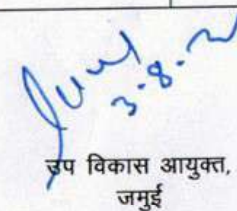 3.8.21
उप विकास आयुक्त,
जमुई